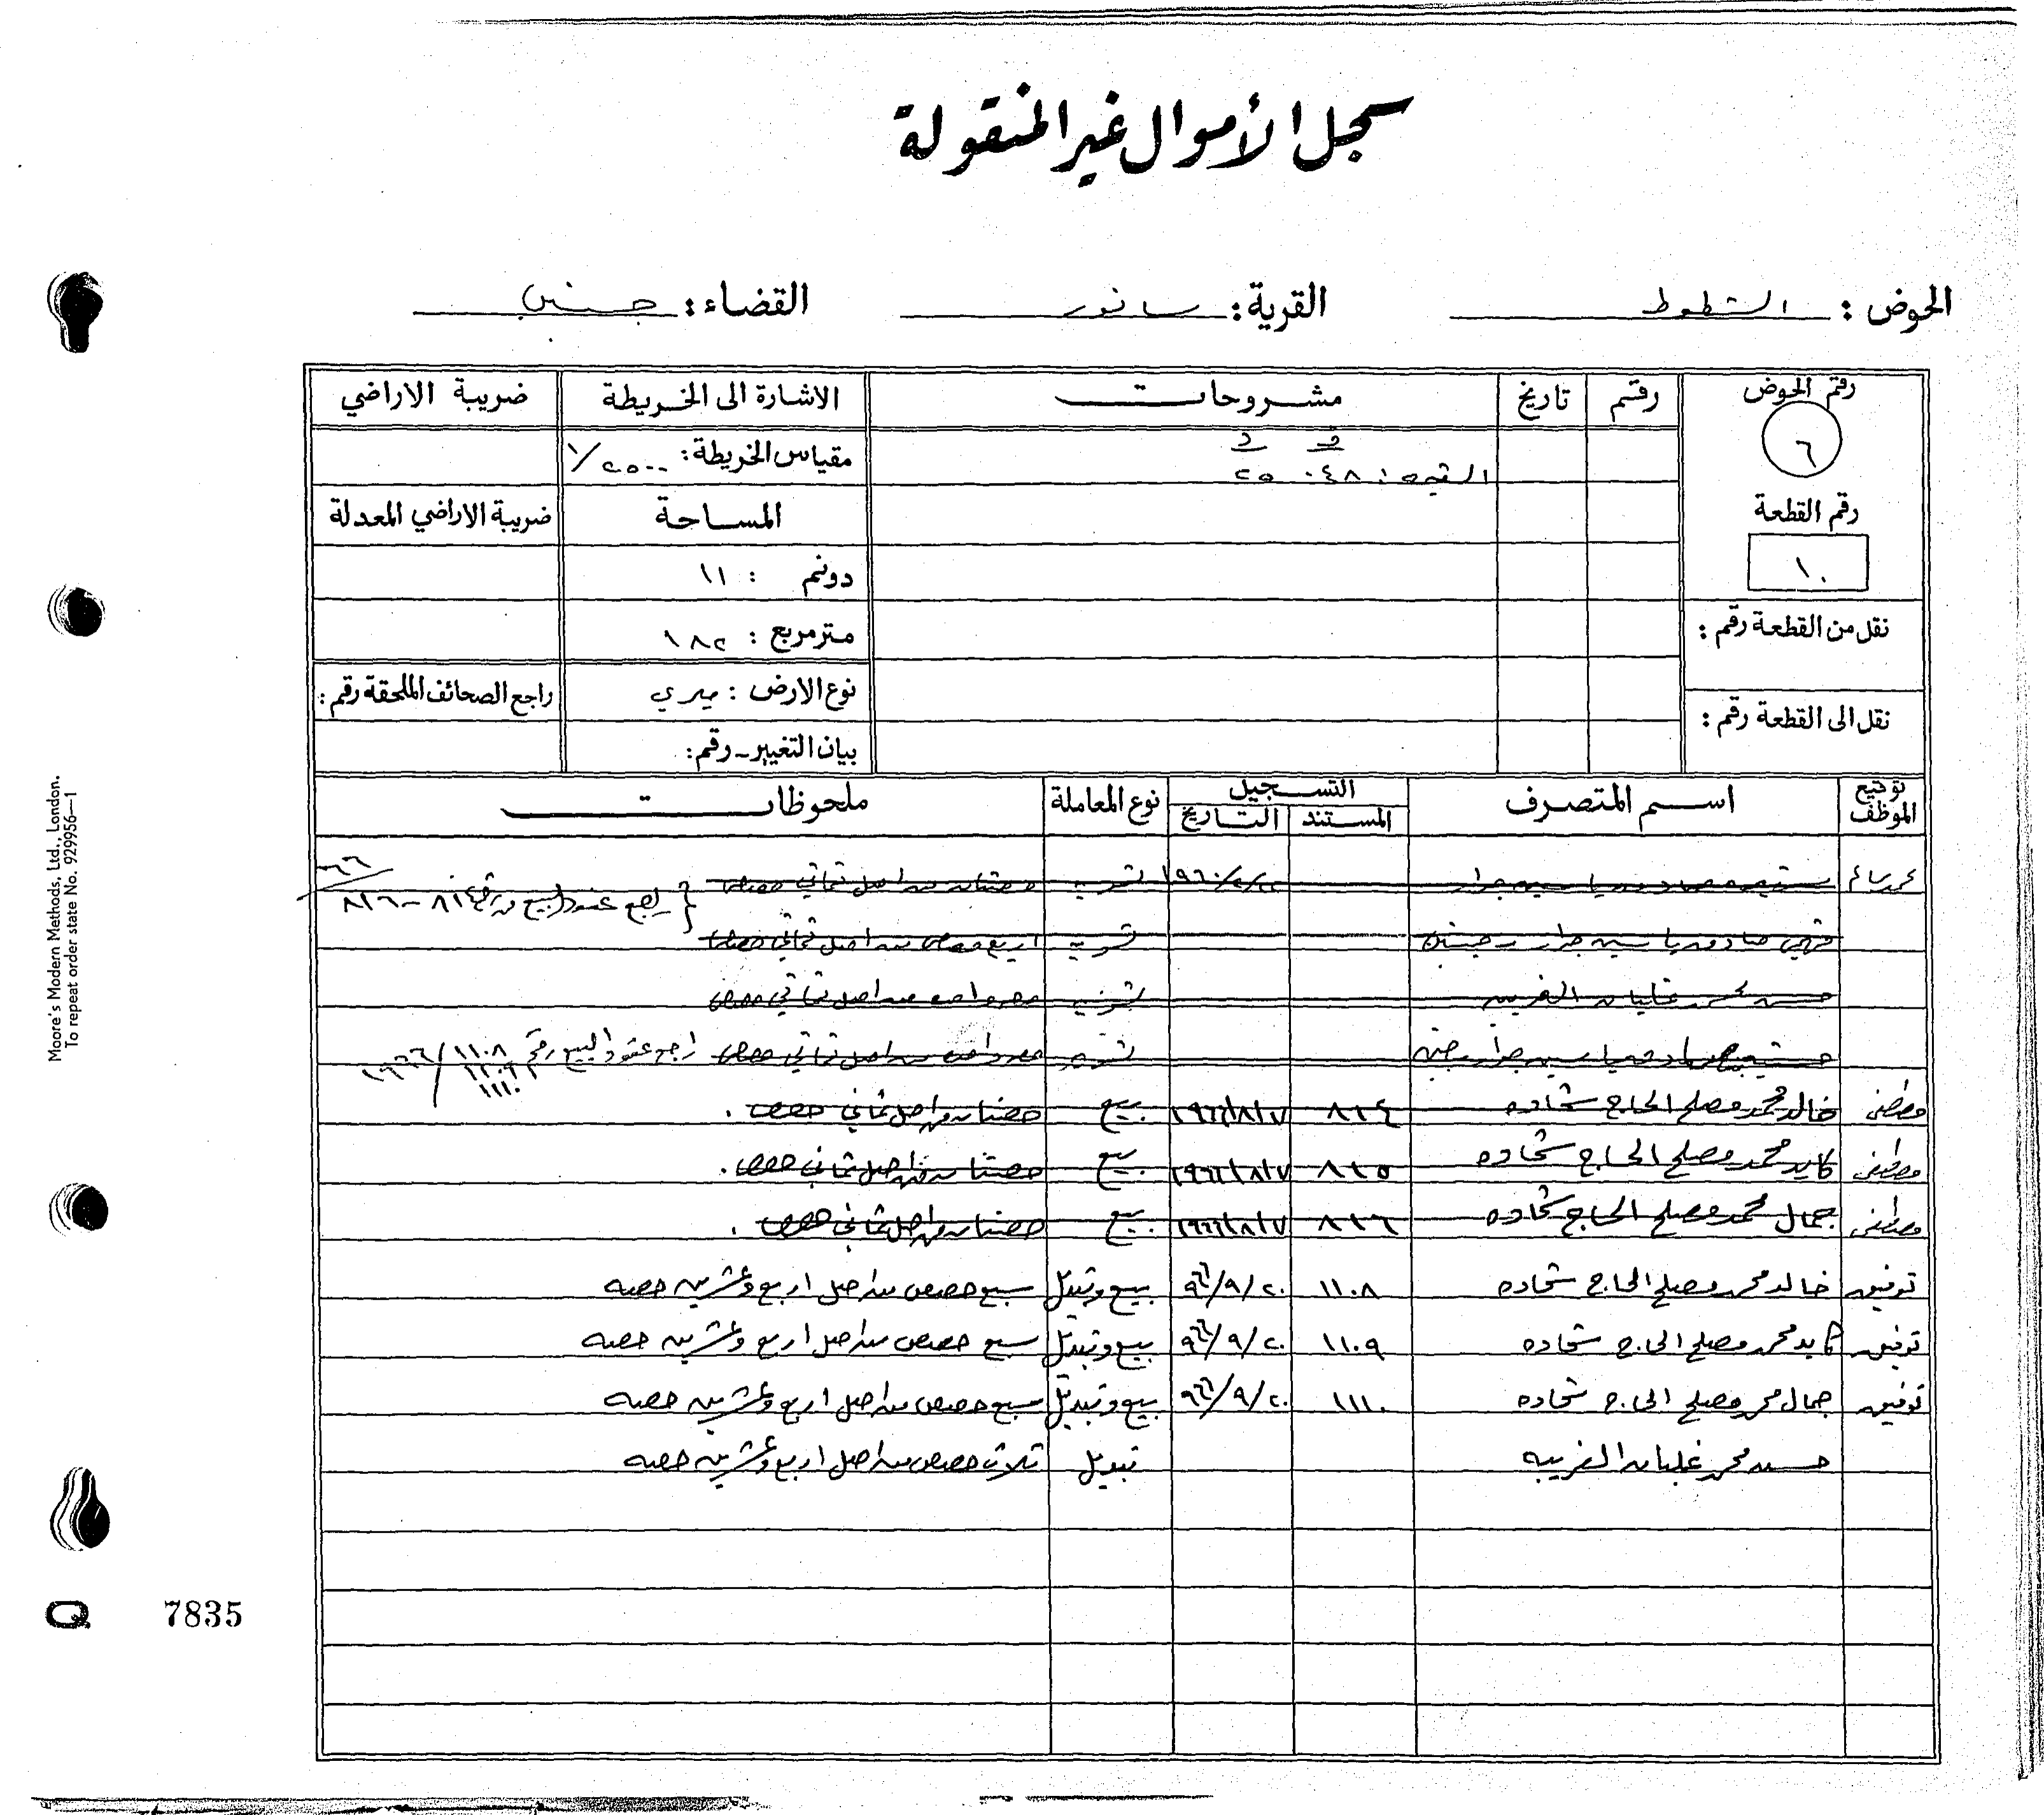 سجل الأموال غير المنقولة
الحوض : الشطوط القرية : سانور القضاء : جنين
رقم الحوض رقم تاريخ مشروحات الاشارة الى الخريطة ضريبة الاراضي
٦ مقياس الخريطة : ١/٢٥٠٠
رقم القطعة المساحة ضريبة الاراضي المعدلة
١٠ دونم : ١١
نقل من القطعة رقم : متر مربع : ١٨٢
نوع الارض : ميري راجع الصحائف الملحقة رقم :
نقل الى القطعة رقم : بيان التغيير - رقم :
توقيع الموظف اسم المتصرف التسجيل المستند التاريخ نوع المعاملة ملحوظات
صادق ياسين جرار تسوية حصتان من اصل ثماني حصص راجع عقود البيع ٨١٤ - ٨١٦
فهمي صادق ياسين جرار تسوية اربع حصص من اصل ثماني حصص
حسن محمد عليان الغريب تسوية حصه واحده من اصل ثماني حصص
صادق ياسين جرار تسوية حصه واحده من اصل ثماني حصص راجع عقود البيع رقم ١١٠٨ ١١٠٩ ١١١٠ / ١٩٦٦
مصطفى خالد محمد مصلح الحاج شحاده ٨١٤ ١٩٦٦/٨/٧ بيع حصتان من اصل ثماني حصص .
مصطفى كايد محمد مصلح الحاج شحاده ٨١٥ ١٩٦٦/٨/٧ بيع حصتان من اصل ثماني حصص .
مصطفى جمال محمد مصلح الحاج شحاده ٨١٦ ١٩٦٦/٨/٧ بيع حصتان من اصل ثماني حصص .
توفيق خالد محمد مصلح الحاج شحاده ١١٠٨ ٩٦٦/٩/٢٠ بيع وتبديل سبع حصص من اصل اربع وعشرين حصه
توفيق كايد محمد مصلح الحاج شحاده ١١٠٩ ٩٦٦/٩/٢٠ بيع وتبديل سبع حصص من اصل اربع وعشرين حصه
توفيق جمال محمد مصلح الحاج شحاده ١١١٠ ٩٦٦/٩/٢٠ بيع وتبديل سبع حصص من اصل اربع وعشرين حصه
حسن محمد عليان الغريب تبديل ثلاث حصص من اصل اربع وعشرين حصه
Moore's Modern Methods, Ltd., London.
To repeat order state No. 929956—1
Q 7835